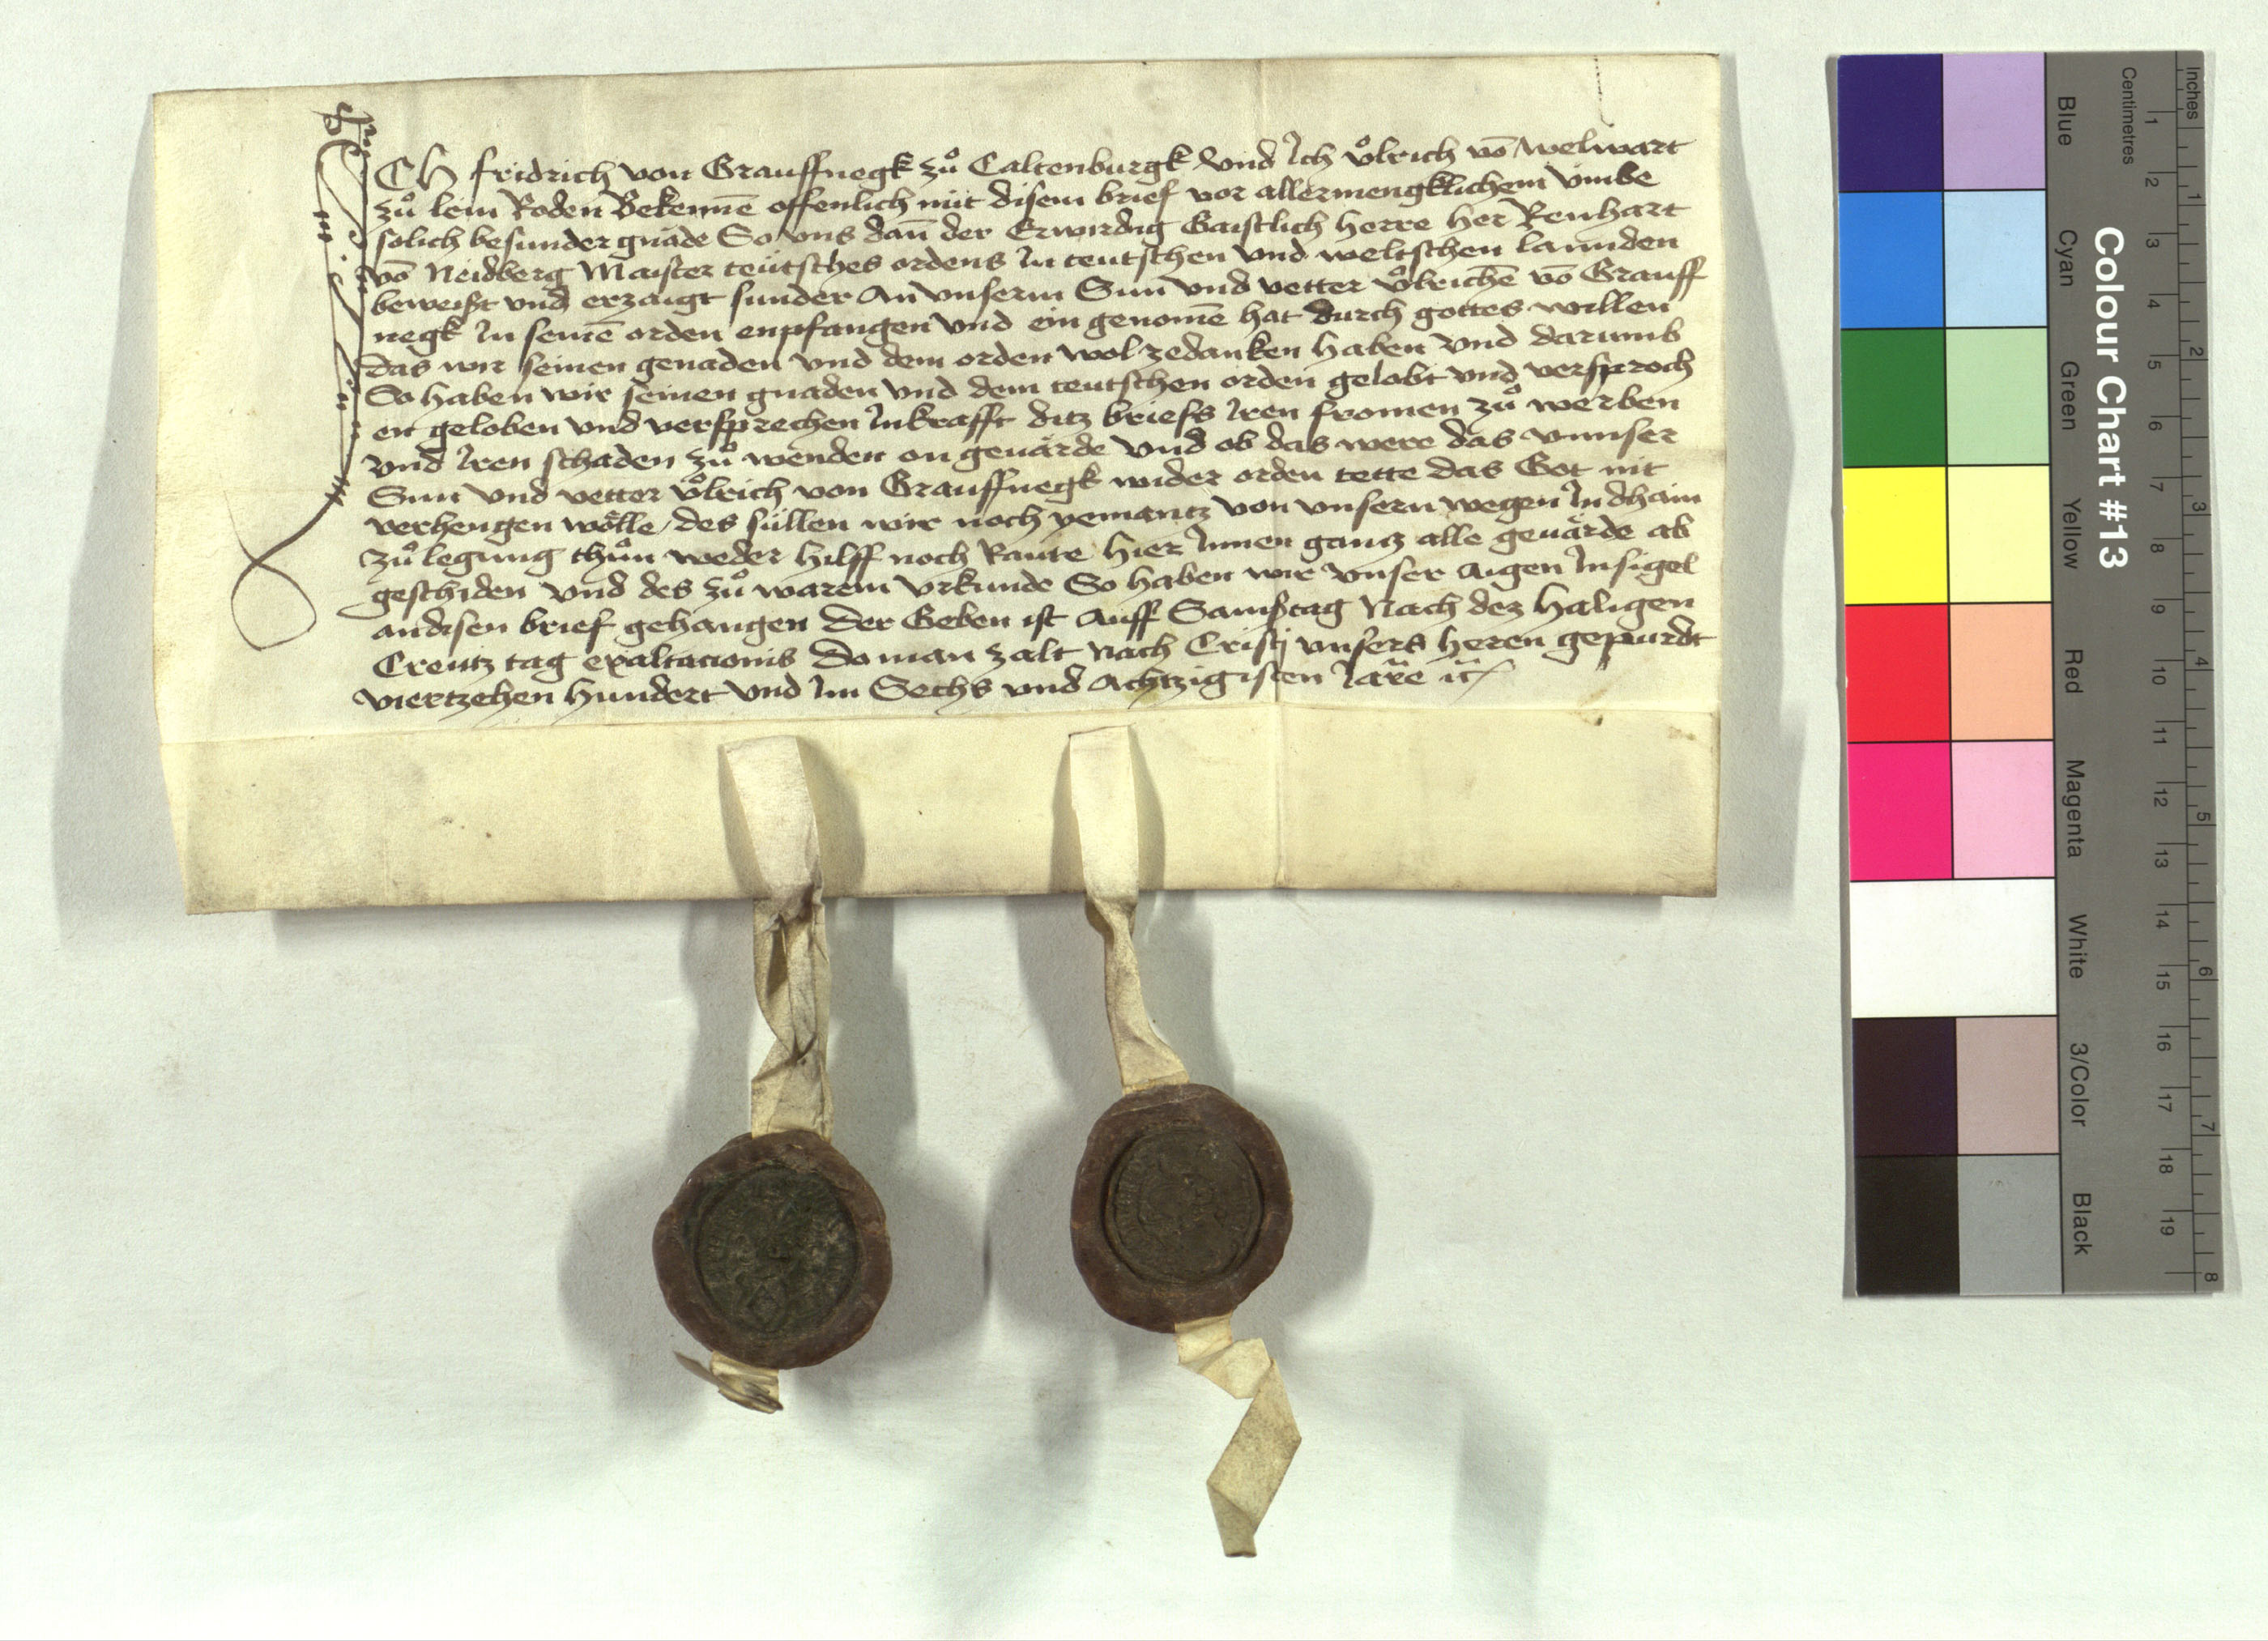 ICH fridrich von Grauffnegk zů Caltenburgk Vnd Ich vͦlrich vō Welwart
zů lein Roden Bekenne̅ offenlich mit disem brief vor allermengklichem vmbe
solich besunder gnade So vns dan̄ der Erwirdig Gaistlich herre her Renhart
vō Neidberg Maister teütsches ordens In teutschen vnd weltschen lannden
beweist vnd erzaigt sunder An vnserm Sun vnd vetter vͦlriche̅ vō Grauff
negk In seine̅ orden enpfangen vnd ein genome̅ hat durch gottes willen
das wir seinen genaden vnd dem orden wol zedanken haben vnd darumb
So haben wir seinen gnaden vnd dem teutschen orden gelobt vnd versproch
en geloben vnd versprechen Inkrafft ditz briefs Iren fromen zů werben
vnd Iren schaden zů wenden on geuärde vnd ob das were das vnnser
Sun vnd vetter vͦlrich von Grauffnegk wider orden tette das Got nit
verhengen wölle / des süllen wir noch yemantz von vnsern wegen In dhain
zů legung thůn weder hilff noch Raute hier Innen gantz alle geuärde ab
geschiden vnd des zů warem vrkunde So haben wir vnser aigen Insigel
andisen brief gehangen Der Geben ist Auff Samstag Nach dez haligen
Creutz tag exaltacionis Do man zalt Nach Cristj vnsers heren gepurdt
viertzehen hundert vnd Im Sechs vnd Achtzigisten Jare
Colour Chart #13
Blue
Cyan
Green
Yellow
Red
Magenta
White
3/Color
Black
Centimetres
1 2 3 4 5 6 7 8 9 10 11 12 13 14 15 16 17 18 19
Inches
1 2 3 4 5 6 7 8